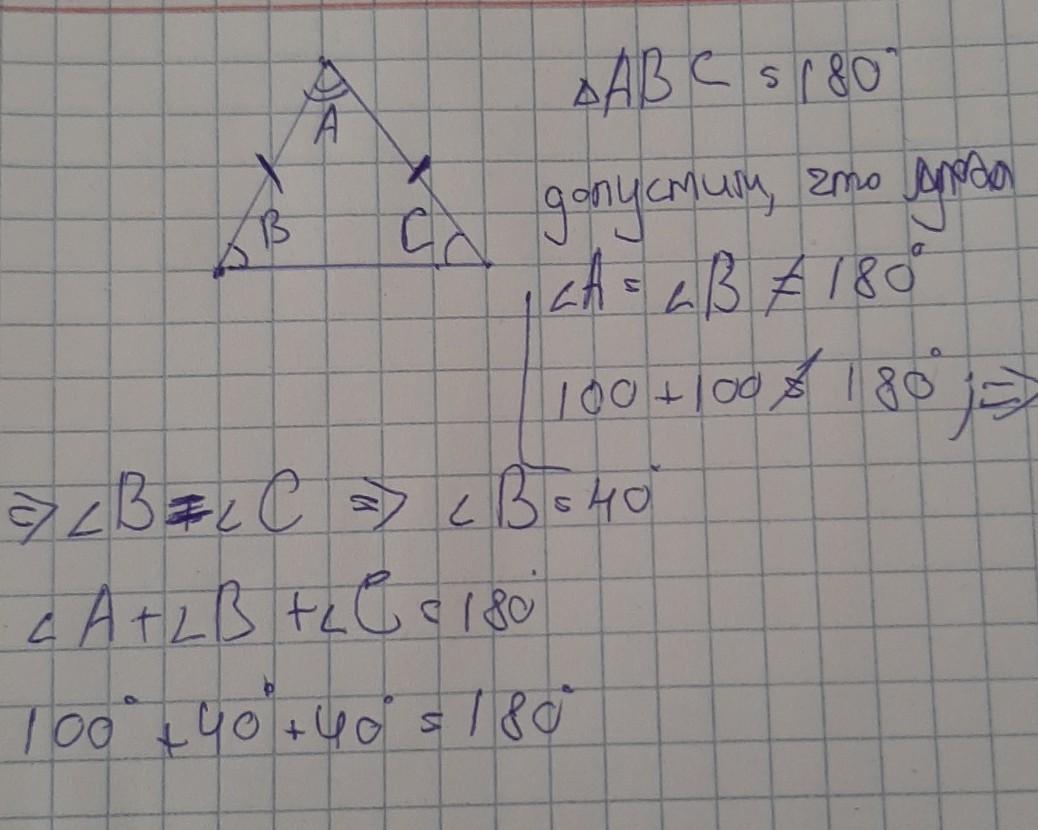 A
B
C
△ABC = 180°
допустим, что
∠A = ∠B ≠ 180°
100 + 100 ≠ 180° ; ⇒
⇒ ∠B = ∠C ⇒ ∠B = 40°
∠A + ∠B + ∠C = 180°
100° + 40° + 40° = 180°